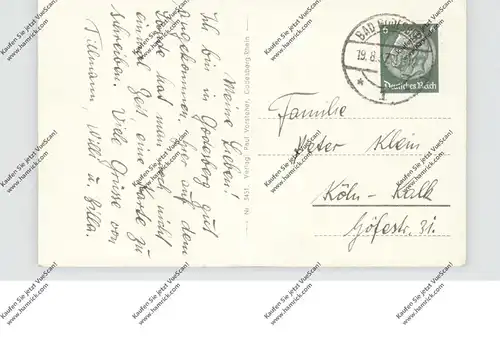 Meine Lieben!
Ich bin in Godesberg gut
angekommen, hier auf dem
Lande hat man noch nicht
einmal Zeit eine Karte zu
schreiben. Viele Grüsse von
Tillmann, Willi u. Billa.
Nr. 5431 Verlag Paul Vorsteher, Godesberg-Rhein
BAD GODESBERG
19.8.
Deutsches Reich
6
Familie
Peter Klein
Köln-Kalk
Göfestr. 31.
Kaufen Sie jetzt VueScan!
www.hamrick.com